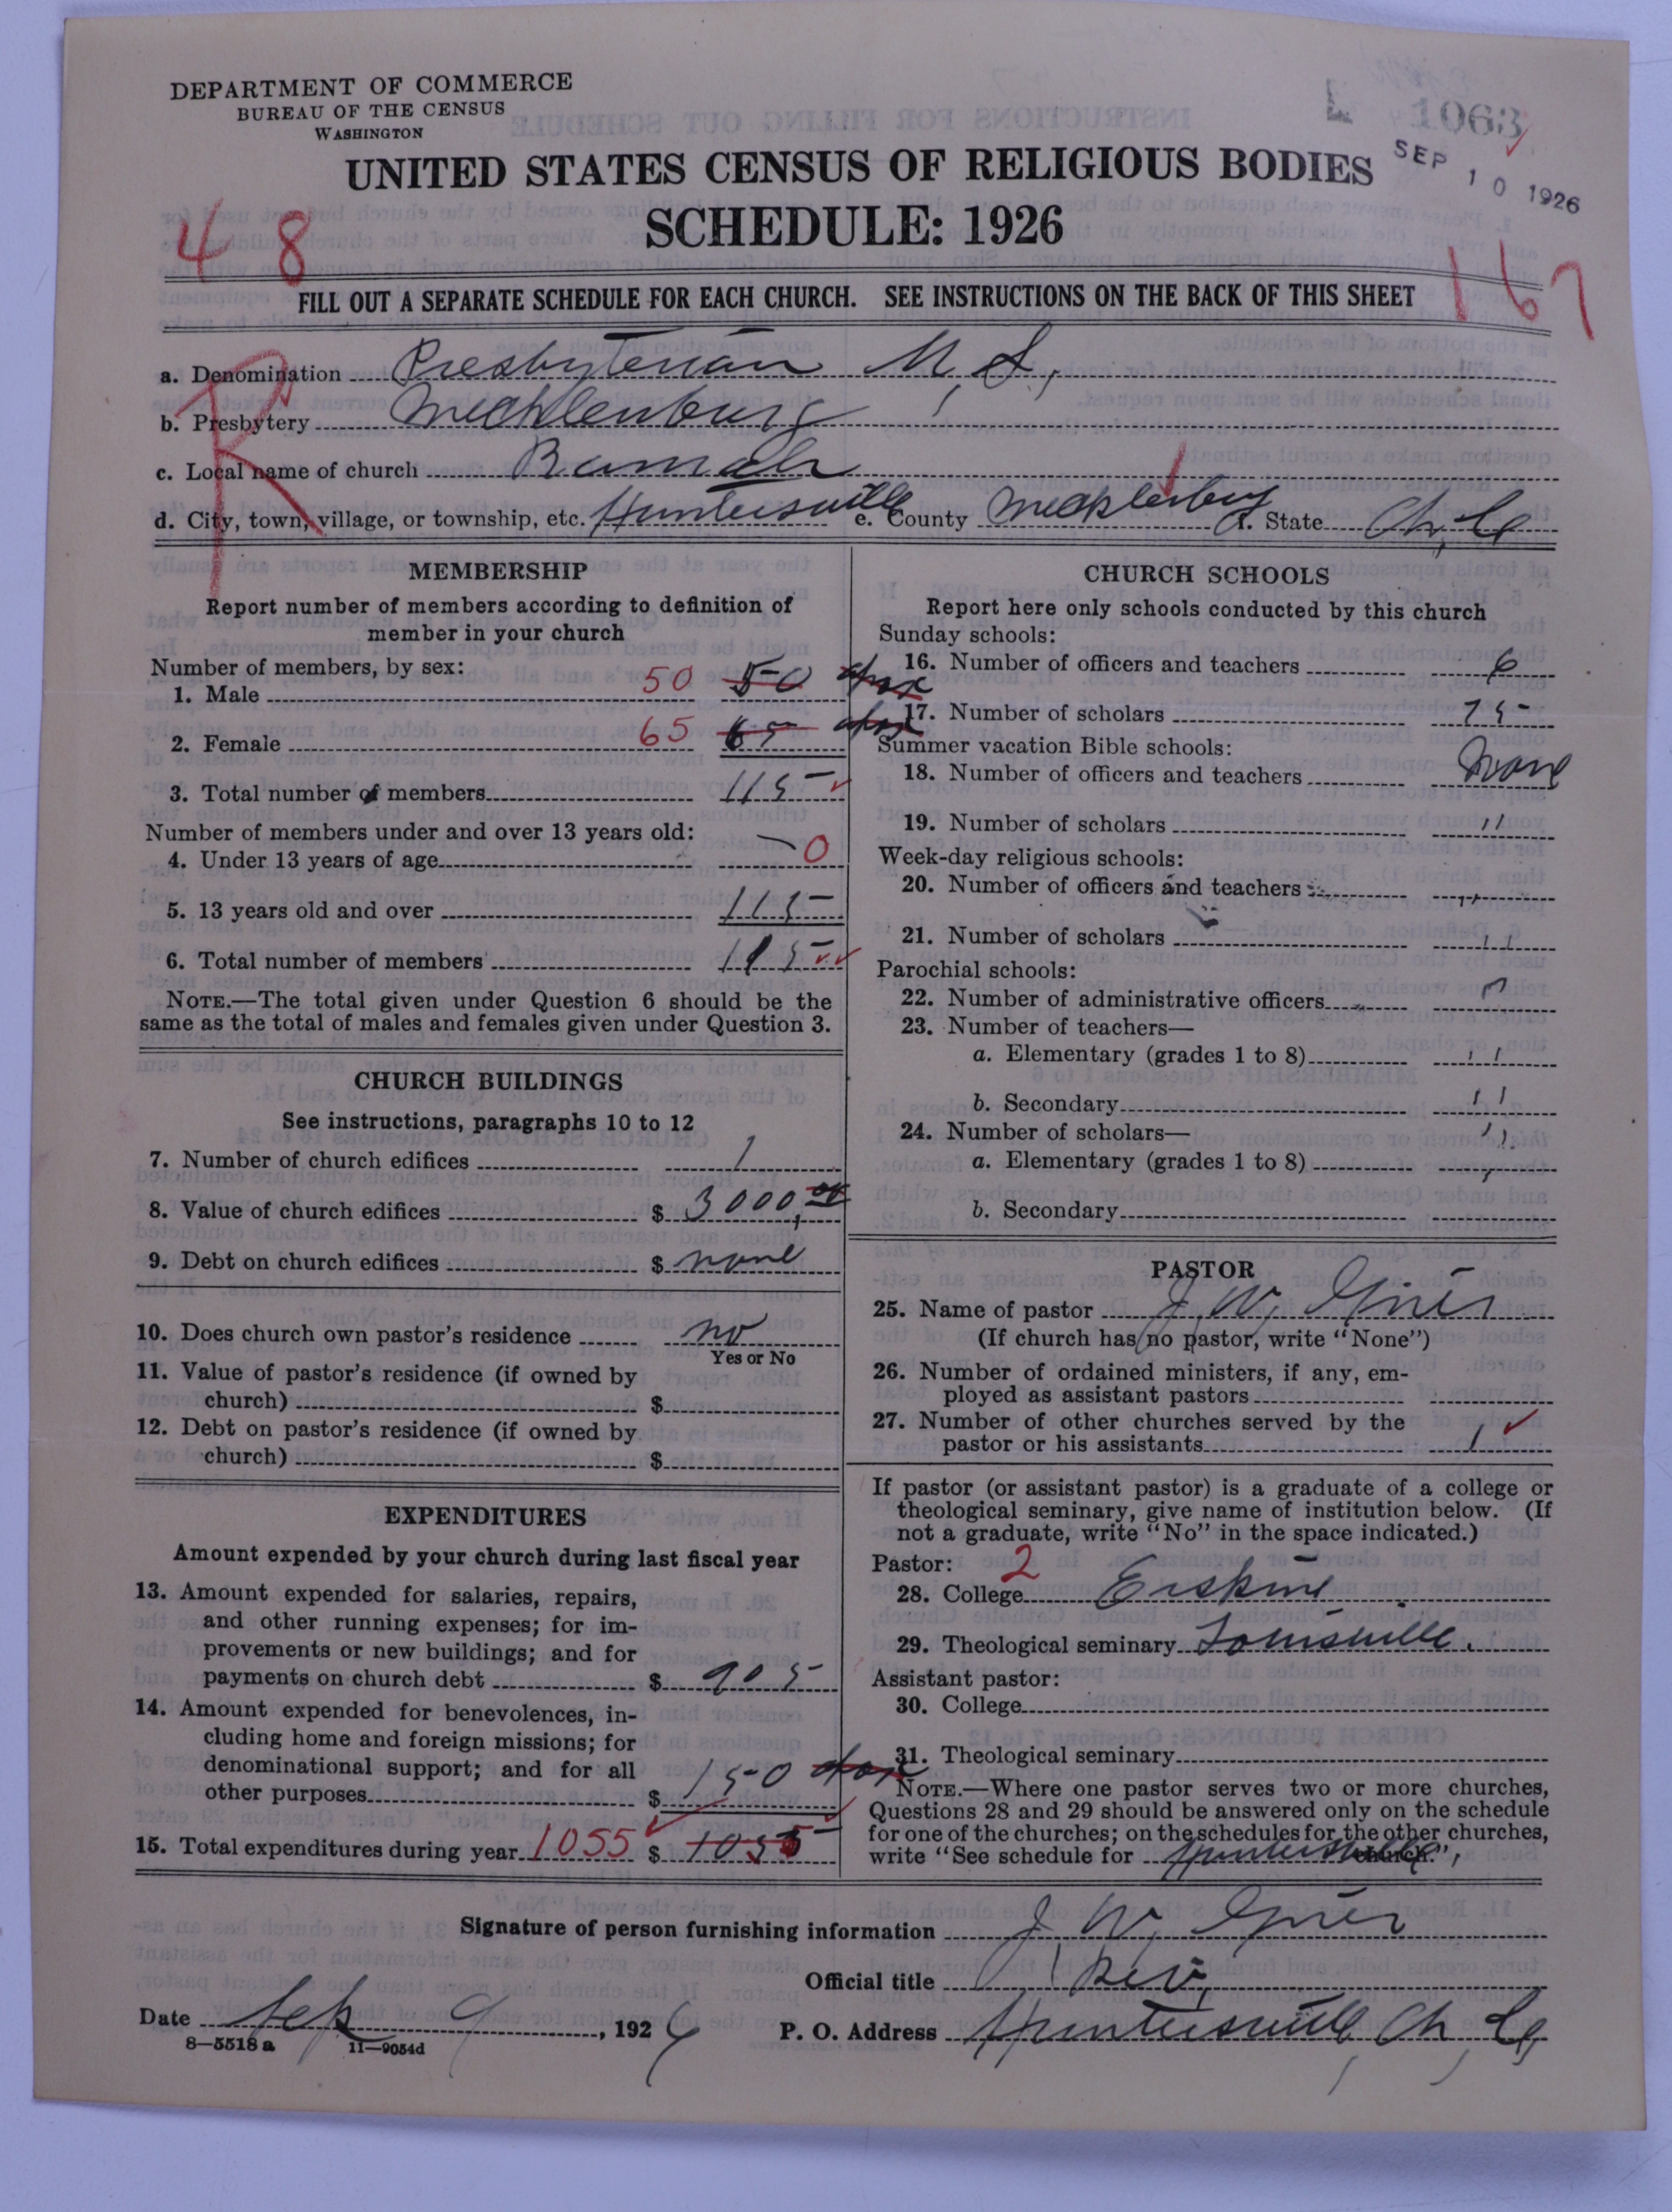 DEPARTMENT OF COMMERCE
BUREAU OF THE CENSUS
WASHINGTON
1063
SEP 10 1926
UNITED STATES CENSUS OF RELIGIOUS BODIES
SCHEDULE: 1926
48
167
FILL OUT A SEPARATE SCHEDULE FOR EACH CHURCH. SEE INSTRUCTIONS ON THE BACK OF THIS SHEET
R
a. Denomination Presbyterian U, S,
b. Presbytery Mecklenburg
c. Local name of church Ramah
d. City, town, village, or township, etc. Huntersville e. County Mecklenburg f. State N, C
MEMBERSHIP
Report number of members according to definition of
member in your church
Number of members, by sex:
1. Male 50 50 apox
2. Female 65 65 apox
3. Total number of members 115
Number of members under and over 13 years old:
4. Under 13 years of age 0
5. 13 years old and over 115
6. Total number of members 115
NOTE.—The total given under Question 6 should be the
same as the total of males and females given under Question 3.
CHURCH BUILDINGS
See instructions, paragraphs 10 to 12
7. Number of church edifices 1
8. Value of church edifices $ 3000,00
9. Debt on church edifices $ none
10. Does church own pastor's residence no
Yes or No
11. Value of pastor's residence (if owned by
church) $
12. Debt on pastor's residence (if owned by
church) $
EXPENDITURES
Amount expended by your church during last fiscal year
13. Amount expended for salaries, repairs,
and other running expenses; for im-
provements or new buildings; and for
payments on church debt $ 905
14. Amount expended for benevolences, in-
cluding home and foreign missions; for
denominational support; and for all
other purposes $ 150 apox
15. Total expenditures during year 1055 $ 1055
CHURCH SCHOOLS
Report here only schools conducted by this church
Sunday schools:
16. Number of officers and teachers 6
17. Number of scholars 75
Summer vacation Bible schools:
18. Number of officers and teachers None
19. Number of scholars "
Week-day religious schools:
20. Number of officers and teachers "
21. Number of scholars "
Parochial schools:
22. Number of administrative officers "
23. Number of teachers—
a. Elementary (grades 1 to 8) "
b. Secondary "
24. Number of scholars— "
a. Elementary (grades 1 to 8)
b. Secondary
PASTOR
25. Name of pastor J, W, Grier
(If church has no pastor, write "None")
26. Number of ordained ministers, if any, em-
ployed as assistant pastors
27. Number of other churches served by the
pastor or his assistants 1
If pastor (or assistant pastor) is a graduate of a college or
theological seminary, give name of institution below. (If
not a graduate, write "No" in the space indicated.)
Pastor: 2
28. College Erskine
29. Theological seminary Louisville.
Assistant pastor:
30. College
31. Theological seminary
NOTE.—Where one pastor serves two or more churches,
Questions 28 and 29 should be answered only on the schedule
for one of the churches; on the schedules for the other churches,
write "See schedule for Huntersville church."
Signature of person furnishing information J W, Grier
Official title Rev,
Date Sep 9, 1926
P. O. Address Huntersville, N, C,
8—5518 a 11—9054d